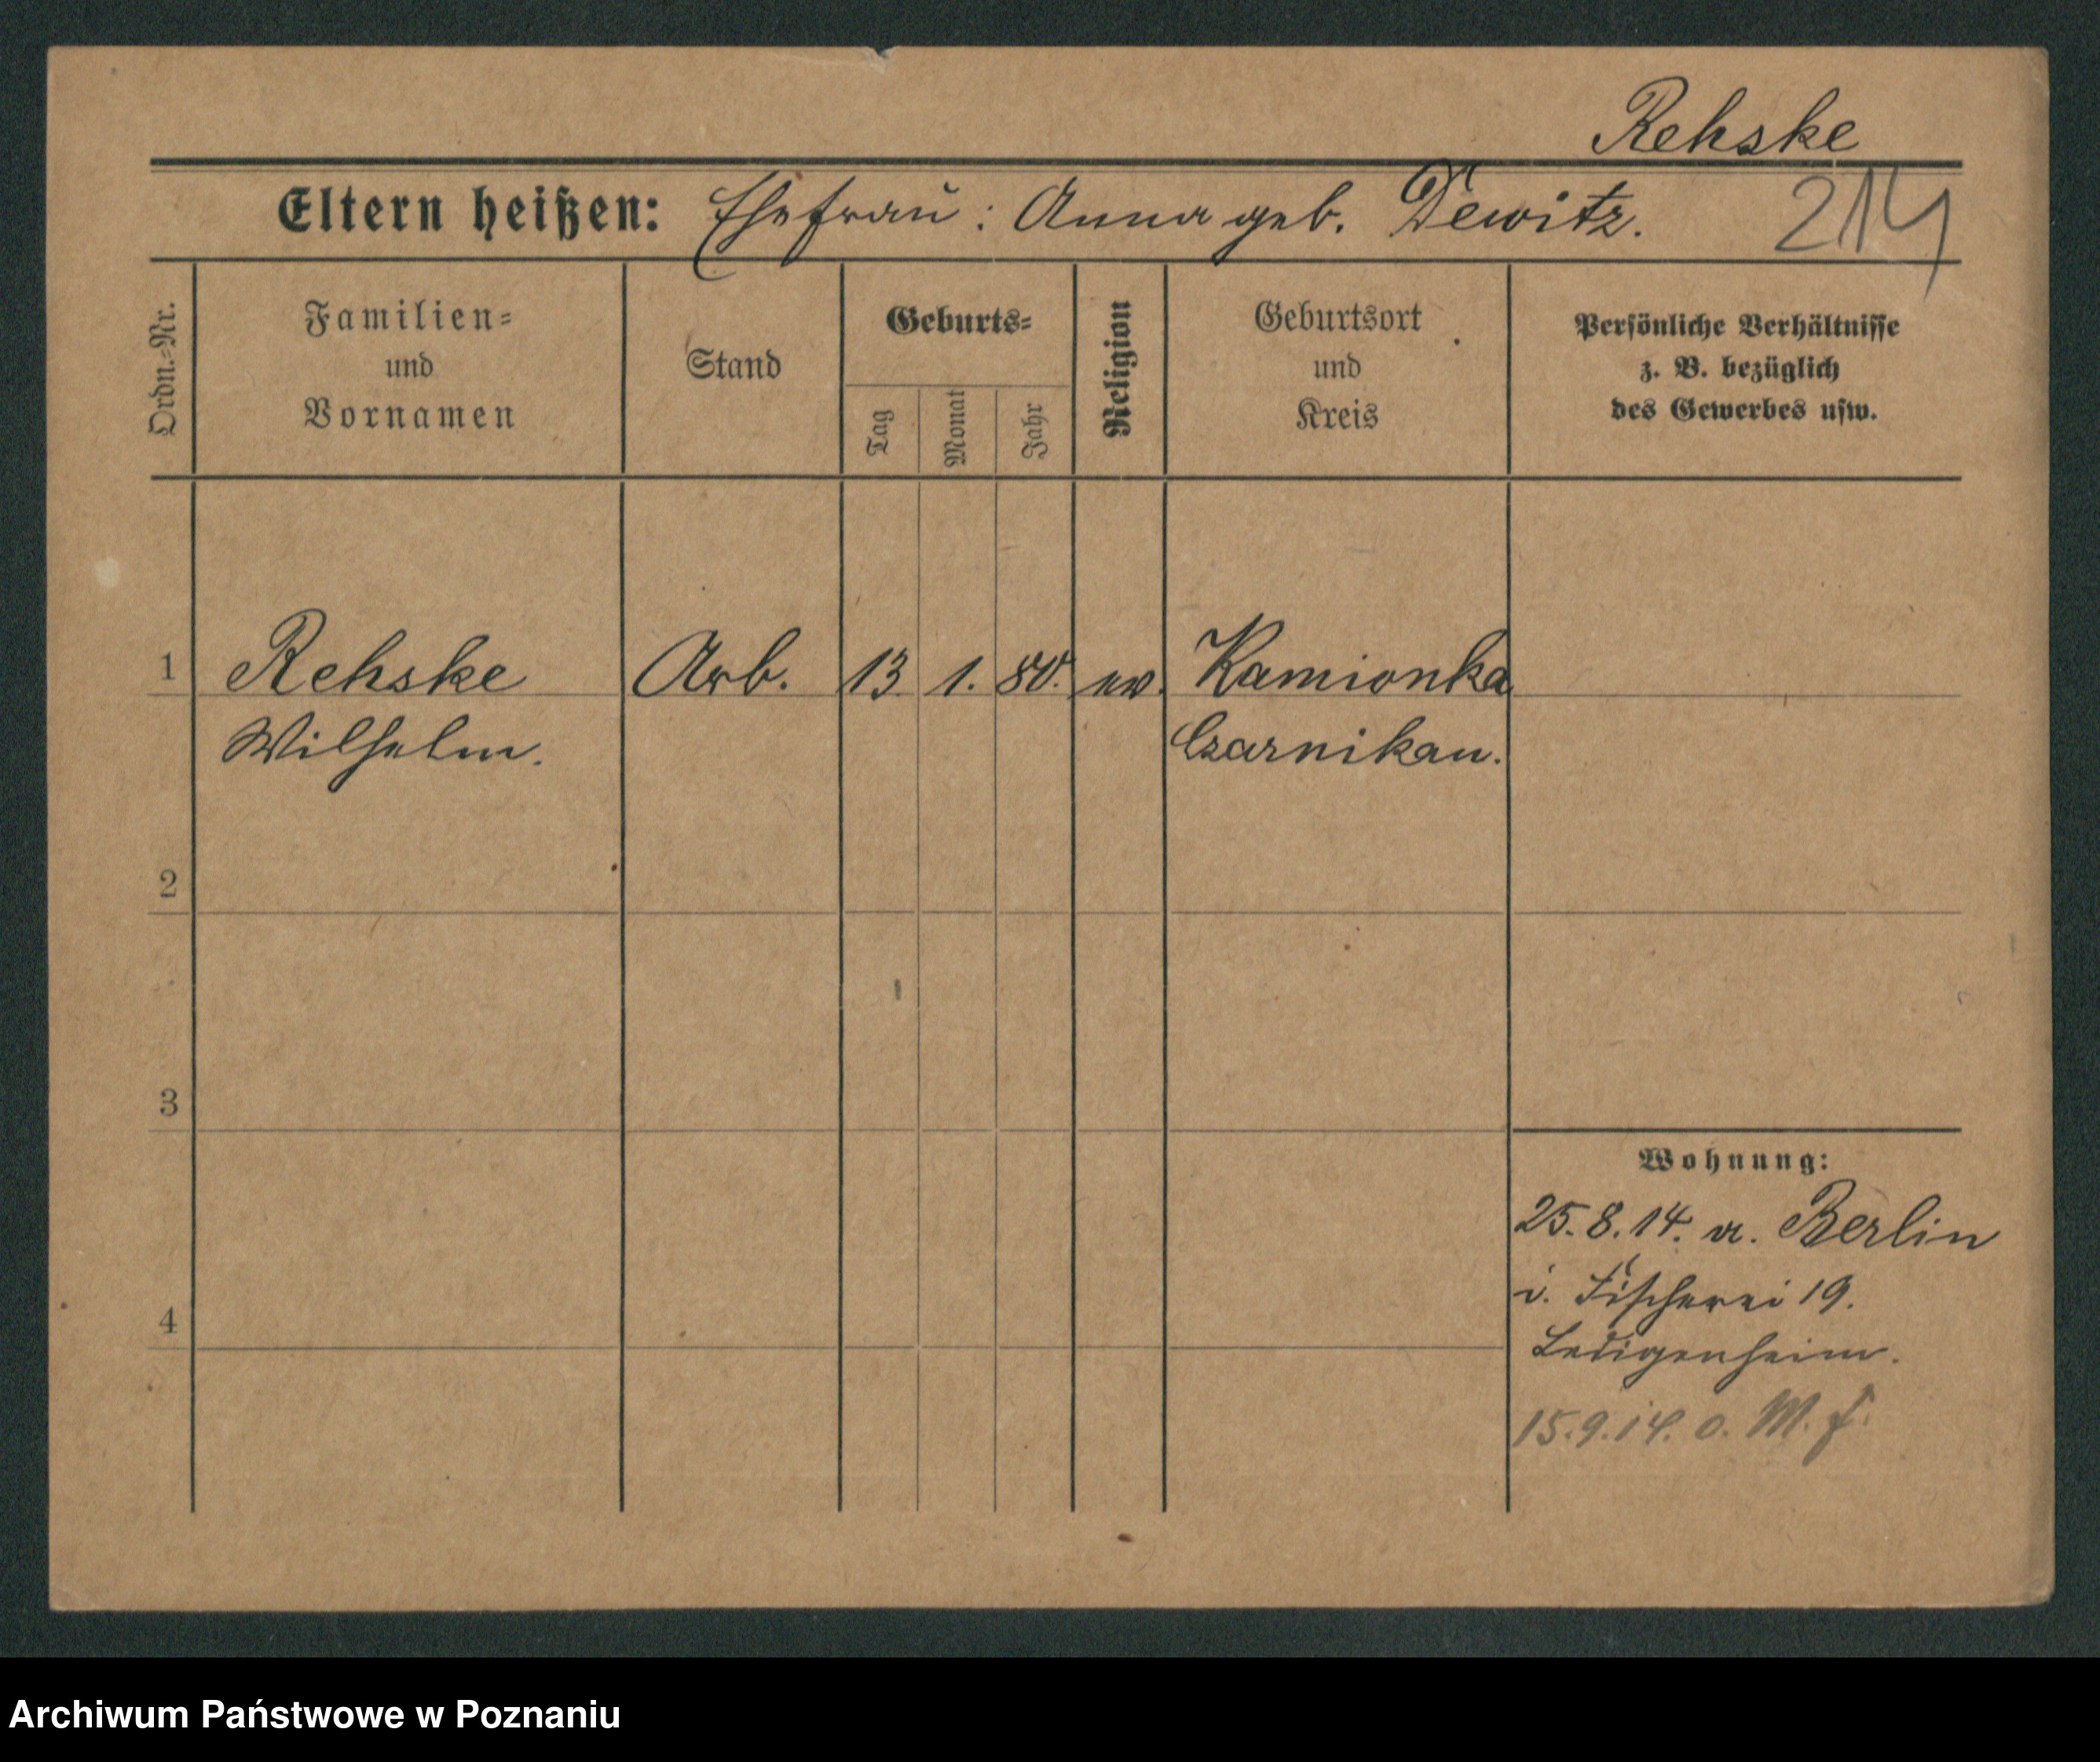 Rehske
Eltern heißen: Ehefrau: Anna geb. Dewitz. 214
Ordn.-Nr.
Familien-
und
Vornamen
Stand
Geburts-
Tag
Monat
Jahr
Religion
Geburtsort
und
Kreis
Persönliche Verhältnisse
z. B. bezüglich
des Gewerbes usw.
1 Rehske Arb. 13. 1. 80. ev. Kamionka
Wilhelm. Czarnikau.
2
3
Wohnung:
25.8.14. a. Berlin
i. Fischerei 19.
4
Ledigenheim.
15.9.14. o. M. f.
Archiwum Państwowe w Poznaniu